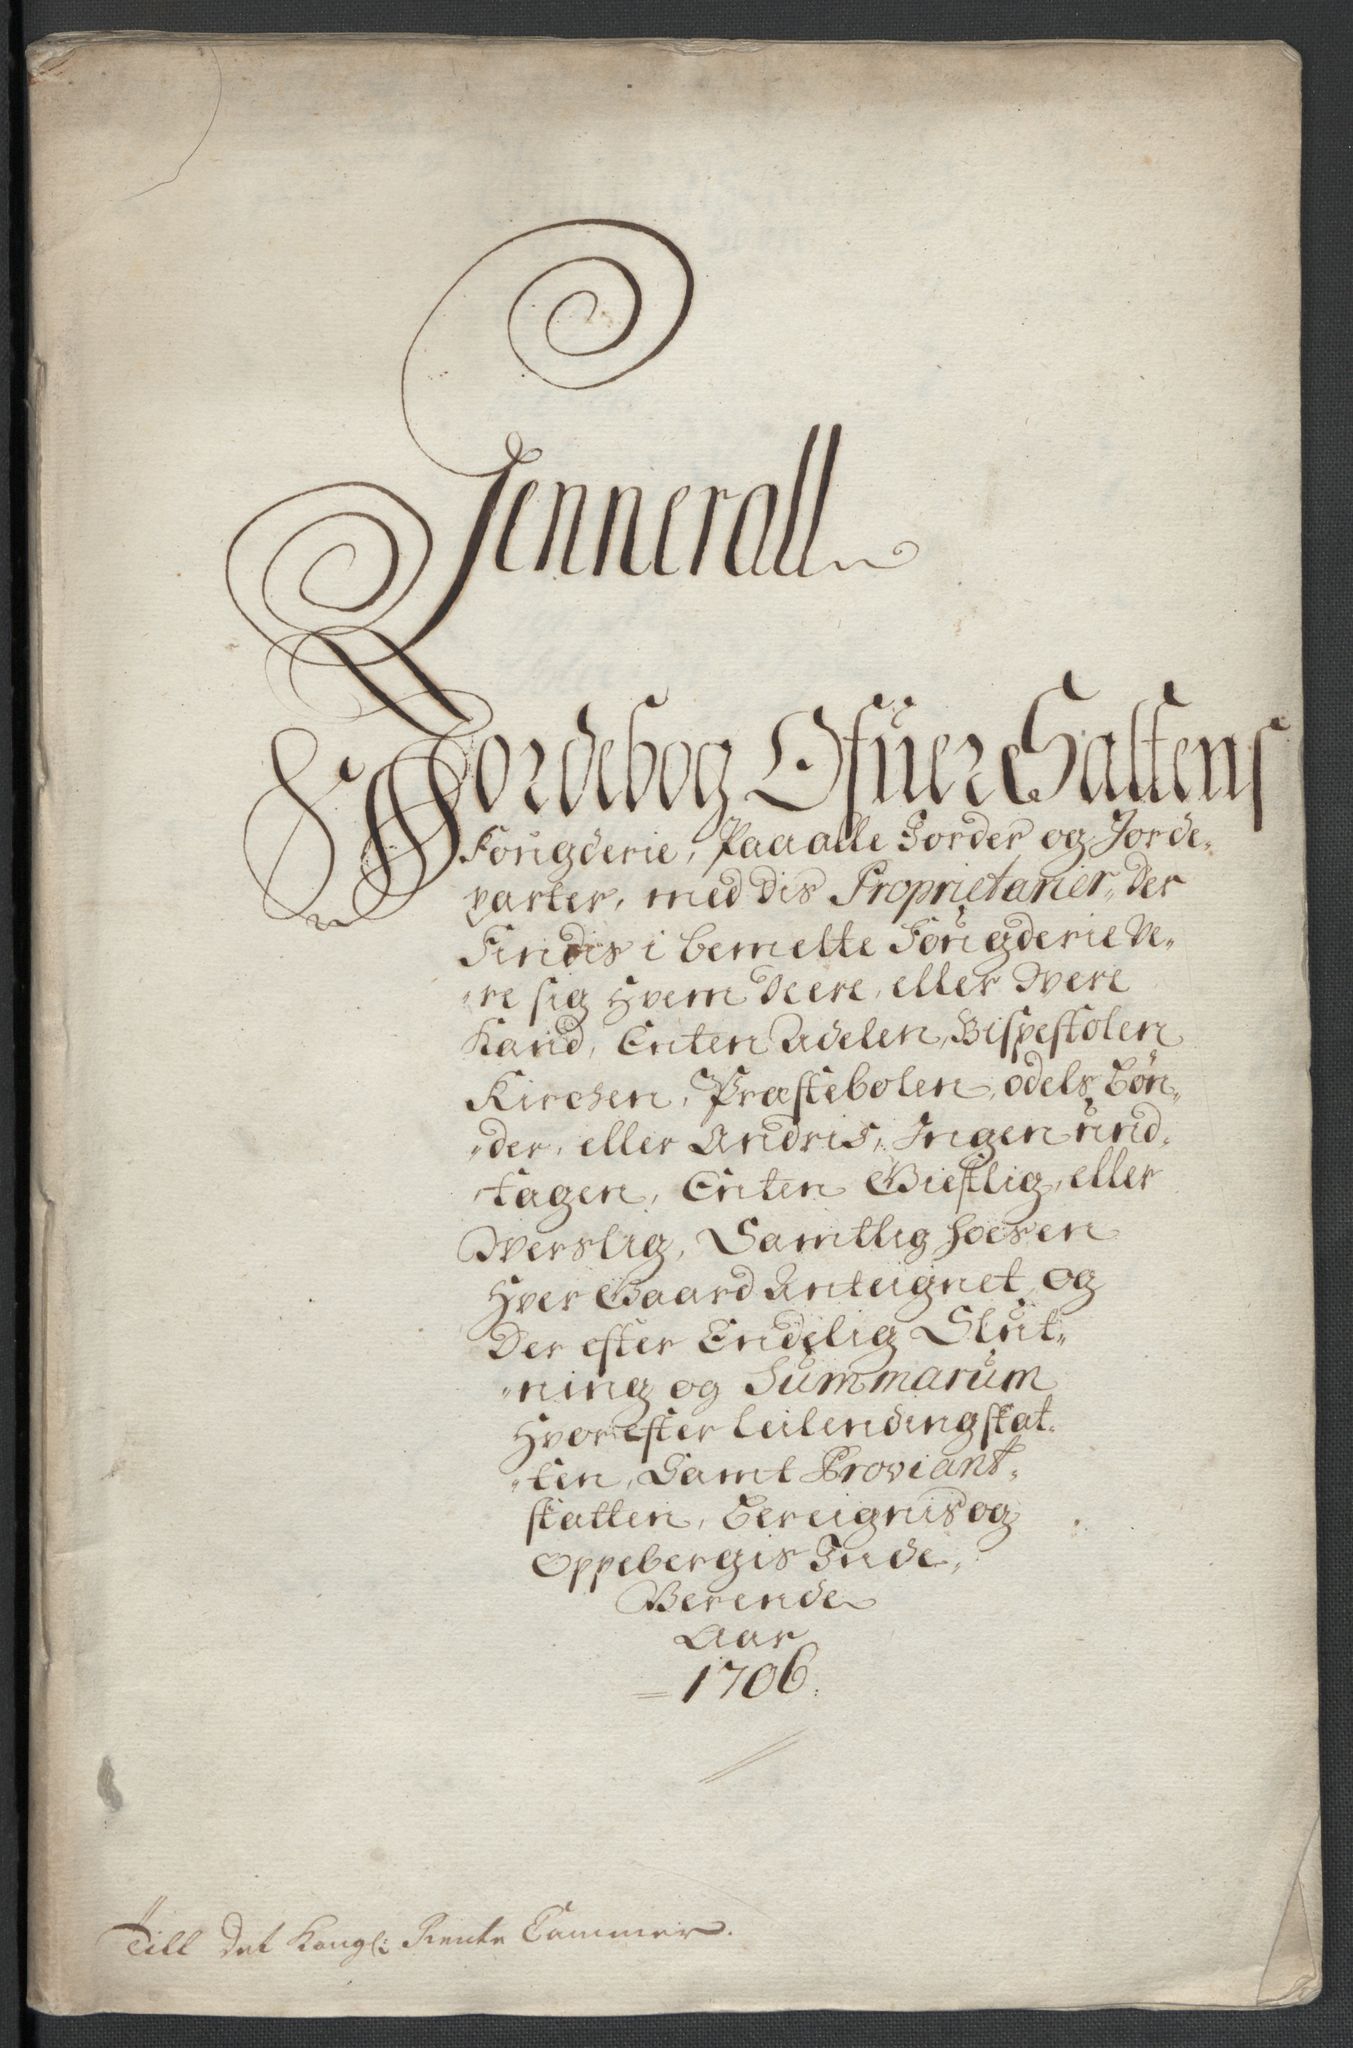 Jennerall
Jordebog Ofuer Saltens
Fougderie, Paa alle Jorder og Jorde„
parter, med dis Proprietarier, der
Findis i bemelte Fougderie Ve„
„re sig Hvem Veere, eller Were
Kand, Enten Adelen, Bispestolen
Kirchen, Præstebolen, odels Bøn„
„der, eller Andris, Ingen und„
tagen, Enten Giestlig, eller
Werslig, Samtlig hoesen
Hver Gaard Anteignet, og
Der efter Endelig Slut„
„ning og Summarum
Hvor efter leilendingskat„
„ten, Samt Proviant„
skatten, Bereignis og
Oppebergis Inde„
Berende
Aar
1706.
Till Det Kongl: Rente Cammer.